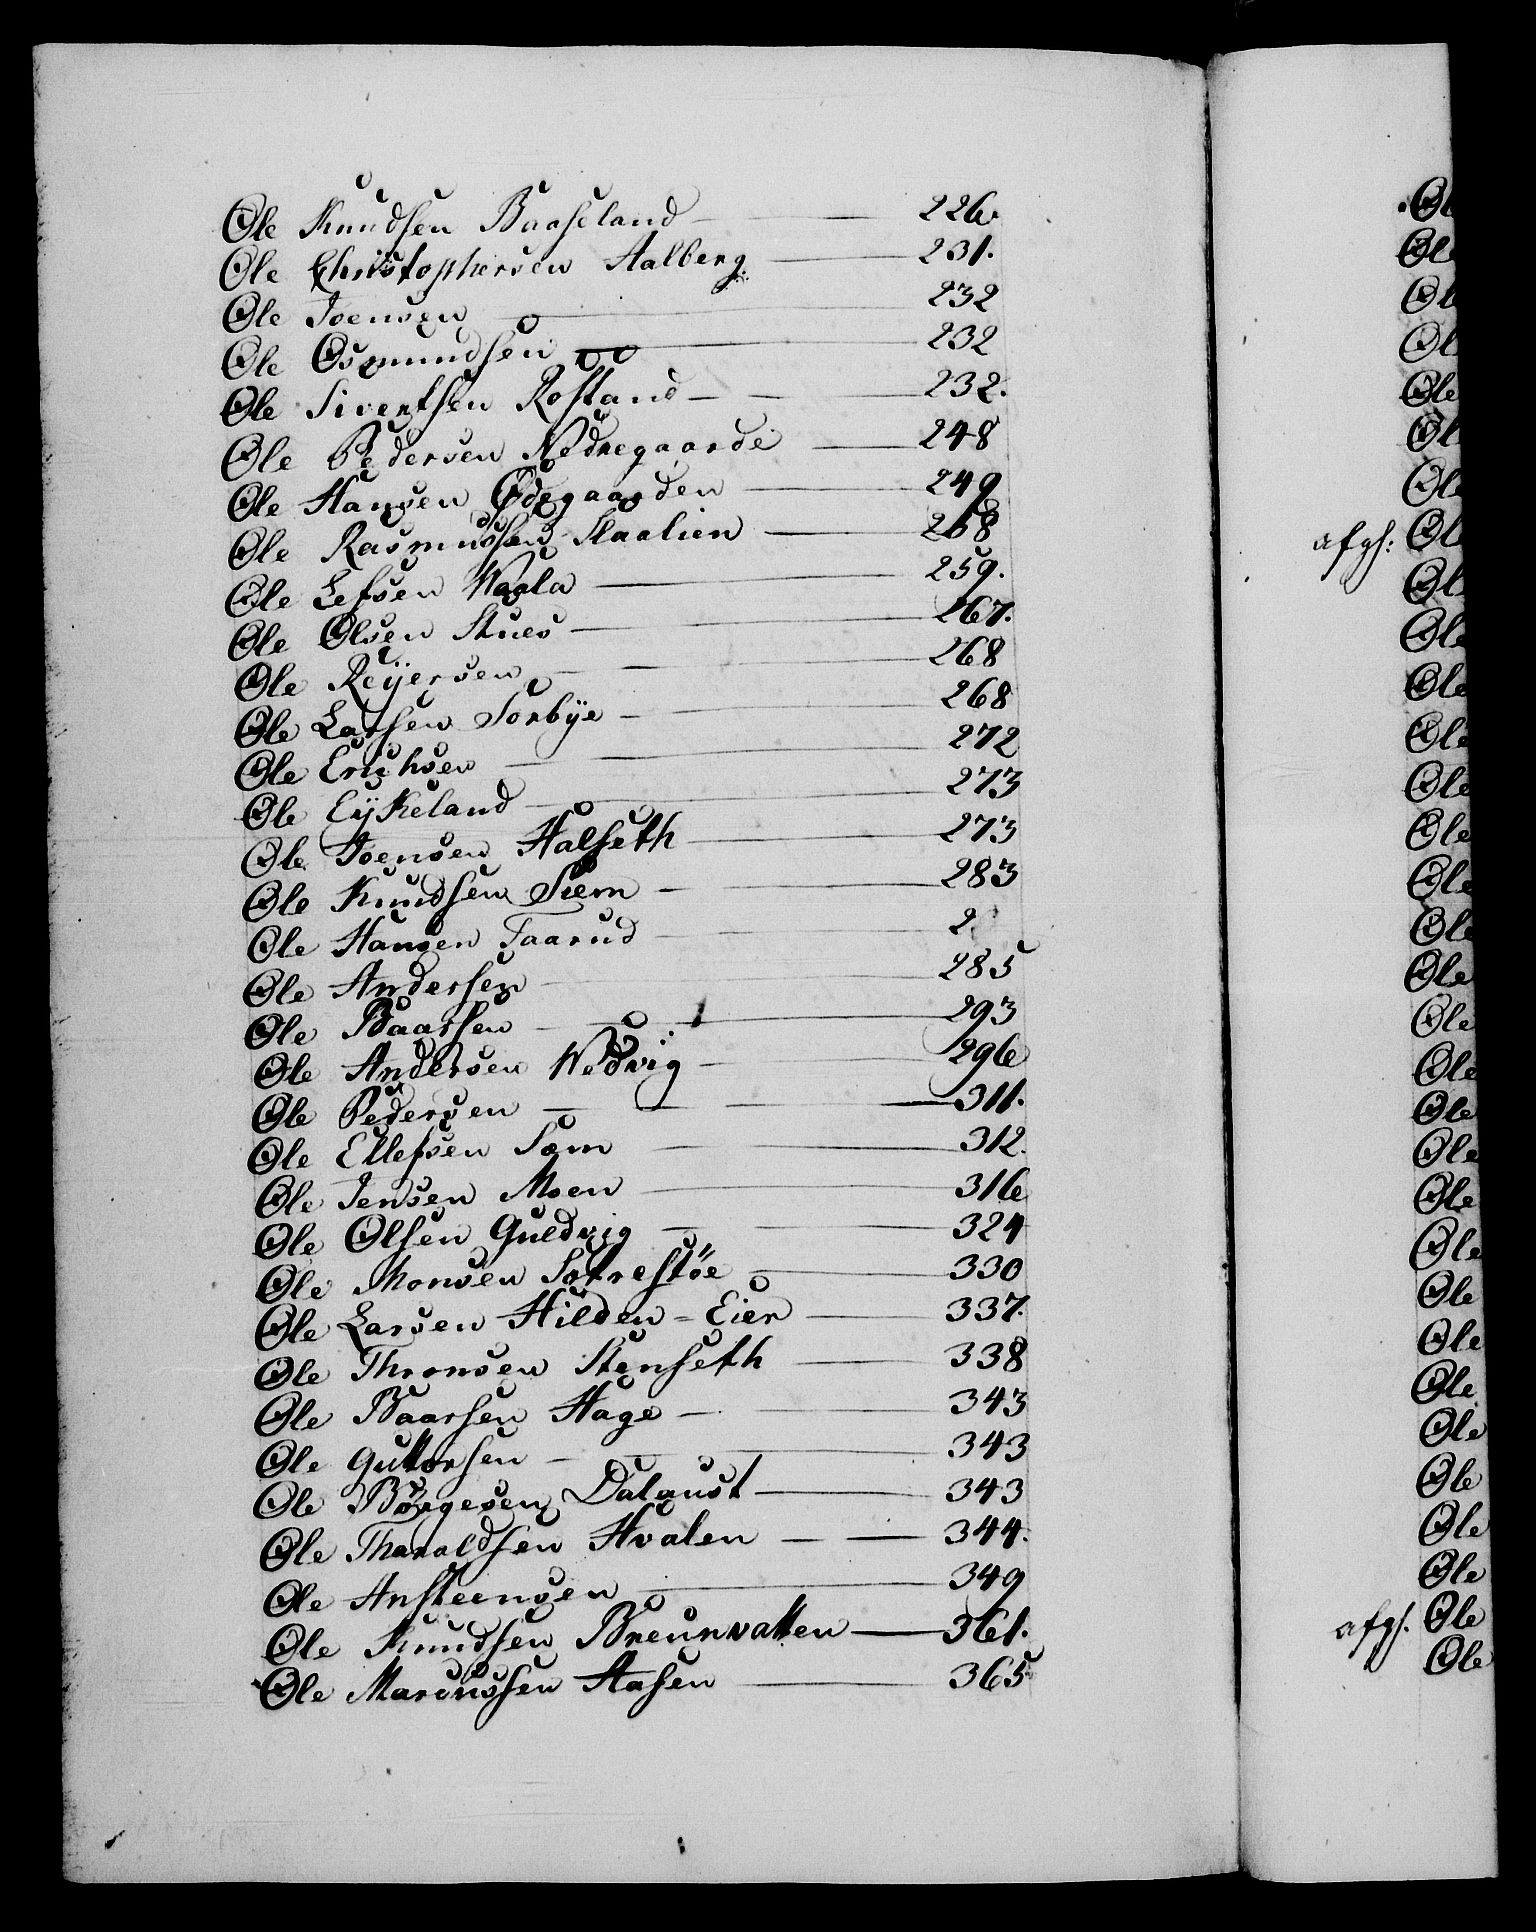 Ole Knudsen Baaseland — 226.
Ole Christophersen Aalberg. — 231.
Ole Joensen — 232
Ole Osmundsen — 232
Ole Sivertsen Rostand — 232.
Ole Pedersen Nedregaarde — 248
Ole Hansen Ødegaarden — 249
Ole Rasmussen Staalien — 258
Ole Lefsen Waala — 259.
Ole Olsen Stues — 267.
Ole Reÿersen — 268
Ole Larsen Sorbÿe — 268
Ole Erichsen — 272
Ole Eÿkeland — 273
Ole Joensen Halseth — 273
Ole Knudsen Siem — 283
Ole Hansen Taarud — 2
Ole Andersen — 285
Ole Baarsen — 293
Ole Andersen Wedvig — 296
Ole Pedersen — 311.
Ole Ellefsen Søm — 312.
Ole Jensen Moen — 316
Ole Olsen Guldvig — 324
Ole Monsen — 330
Ole Larsen Hilden = Eier — 337.
Ole Thronsen Stenseth — 338
Ole Baarsen Hage — 343
Ole Guttorsen — 343
Ole Børgesen Dalaust — 343
Ole Tharaldsen Hvalen — 344.
Ole Ansteensen — 349
Ole Knudsen Breunvatten — 361.
Ole Marcussen Aasen — 365
afgh: Ole
Ole
Ole
Ole
Ole
Ole
Ole
Ole
Ole
Ole
Ole
Ole
Ole
Ole
Ole
Ole
Ole
Ole
Ole
Ole
Ole
Ole
Ole
afgh. Ole
Ole